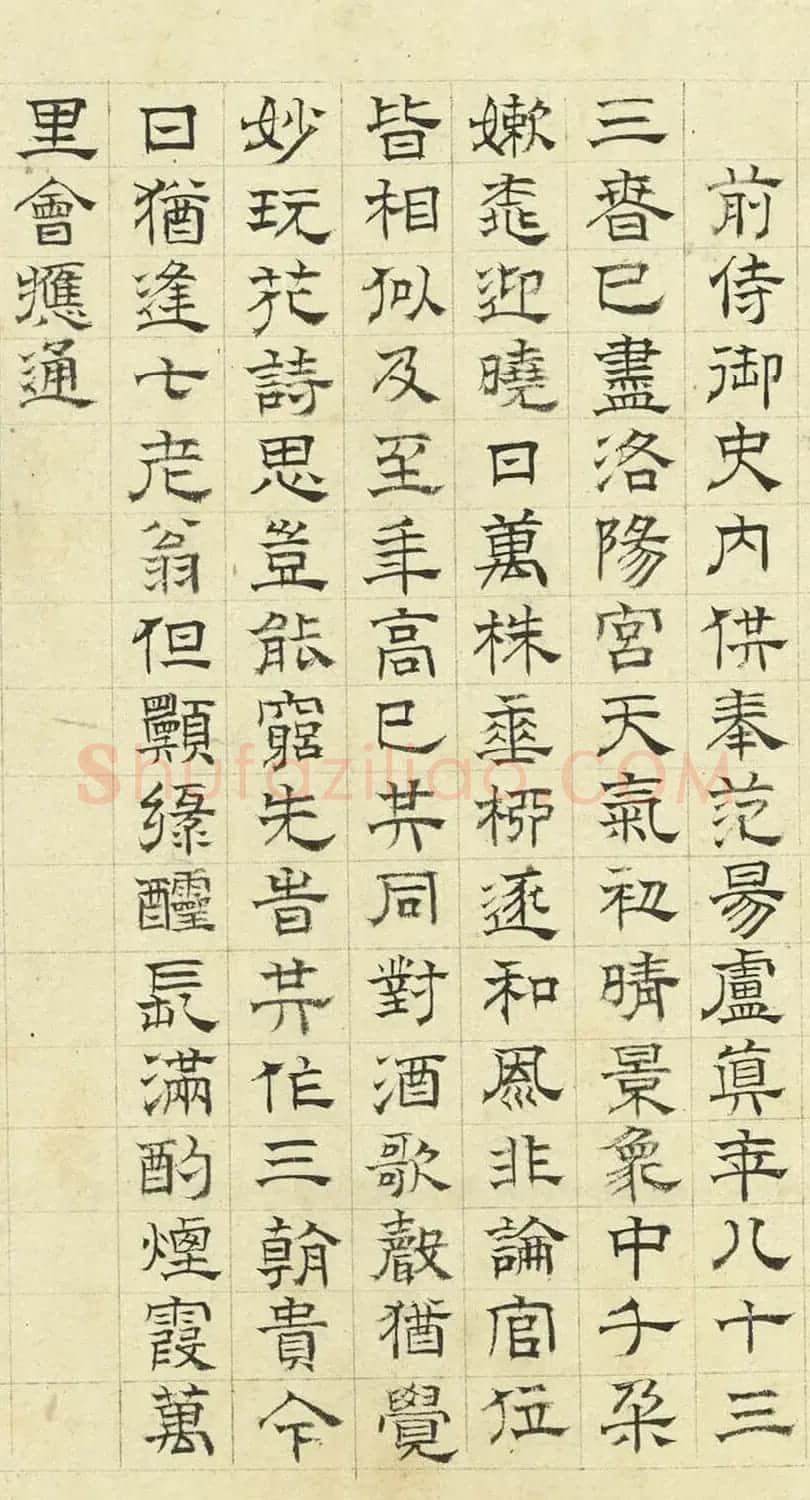 前侍御史内供奉范昜盧眞年八十三
三春已盡洛陽宮天氣初晴景象中千朶
嫰桃迎曉日萬株垂栁逐和風非論官位
皆相似及至年高已共同對酒歌聲猶覺
妙玩花詩思豈能窮先時共作三朝貴今
日猶逢七老翁但願緑醽長滿酌煙霞萬
里會應通
Shufaziliao.COM